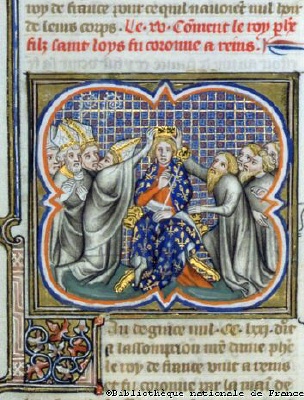 roy de france pour ce quil nauoient nul hoir
de leurs corps. Le .xv. Coment le roy phe
filz saint loys fu coronne a reins.
An de grace mil. CC. lxxi. dit
a lassompcion nre dame phe
le roy de france vint a reins
et fu coronne par la main de
©Bibliothèque nationale de France